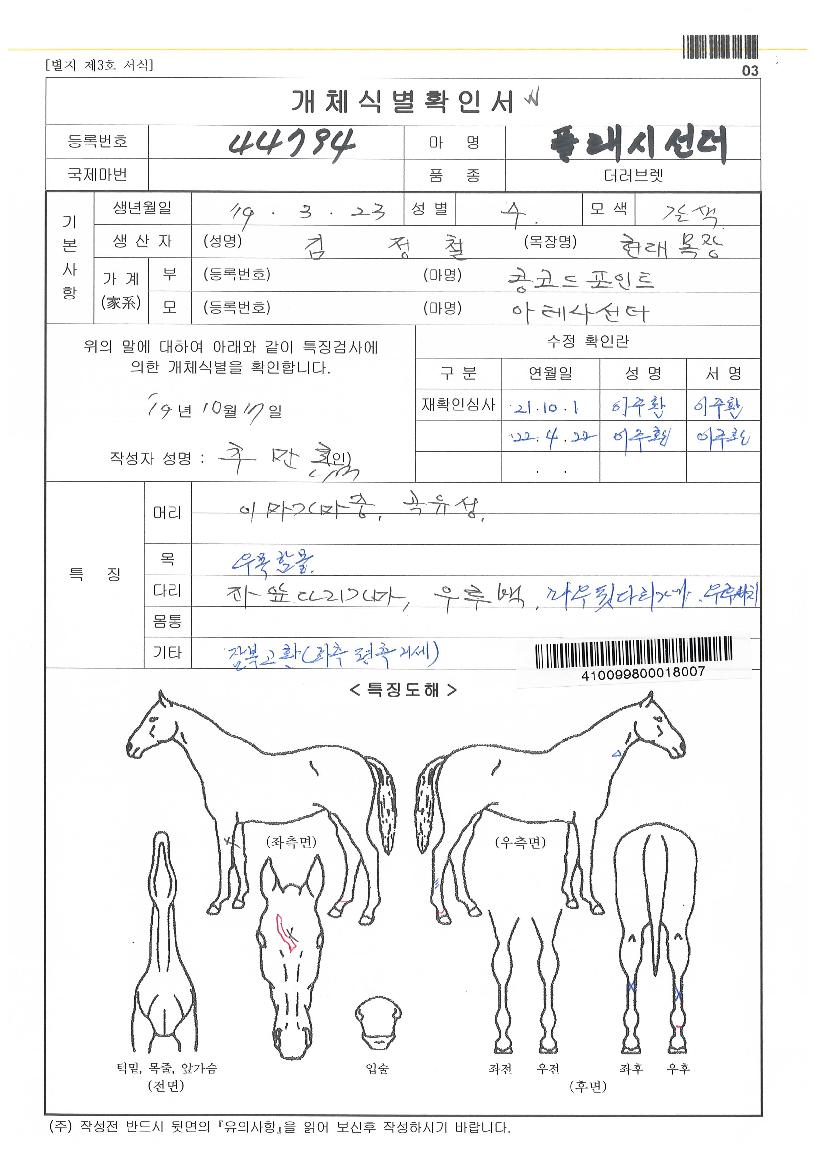 [별지 제3호 서식]
03
개체식별확인서
등록번호 44794 마 명 플래시선더
국제마번 품 종 더러브렛
기본사항
생년월일 '19 . 3 . 23 성 별 수. 모 색 갈색
생 산 자 (성명) 김 정 철 (목장명) 현대목장
가 계 (家系) 부 (등록번호) (마명) 콩코드포인트
모 (등록번호) (마명) 아테나선더
위의 말에 대하여 아래와 같이 특징검사에
의한 개체식별을 확인합니다.
'19년 10월 17일
작성자 성명 : 추 만 (인)
수정 확인란
구 분 연월일 성 명 서 명
재확인심사 '21.10.1 이주환 이주환
'22.4.22 이주환 이주환
. .
특 징
머리 이마가마중, 곡유성.
목
다리 좌앞다리가마, 우후백,
몸통
기타 잠복고환(좌측 편측거세)
410099800018007
< 특징도해 >
(좌측면) (우측면)
턱밑, 목줄, 앞가슴 입술 좌전 우전 좌후 우후
(전면) (후면)
(주) 작성전 반드시 뒷면의 『유의사항』을 읽어 보신후 작성하시기 바랍니다.